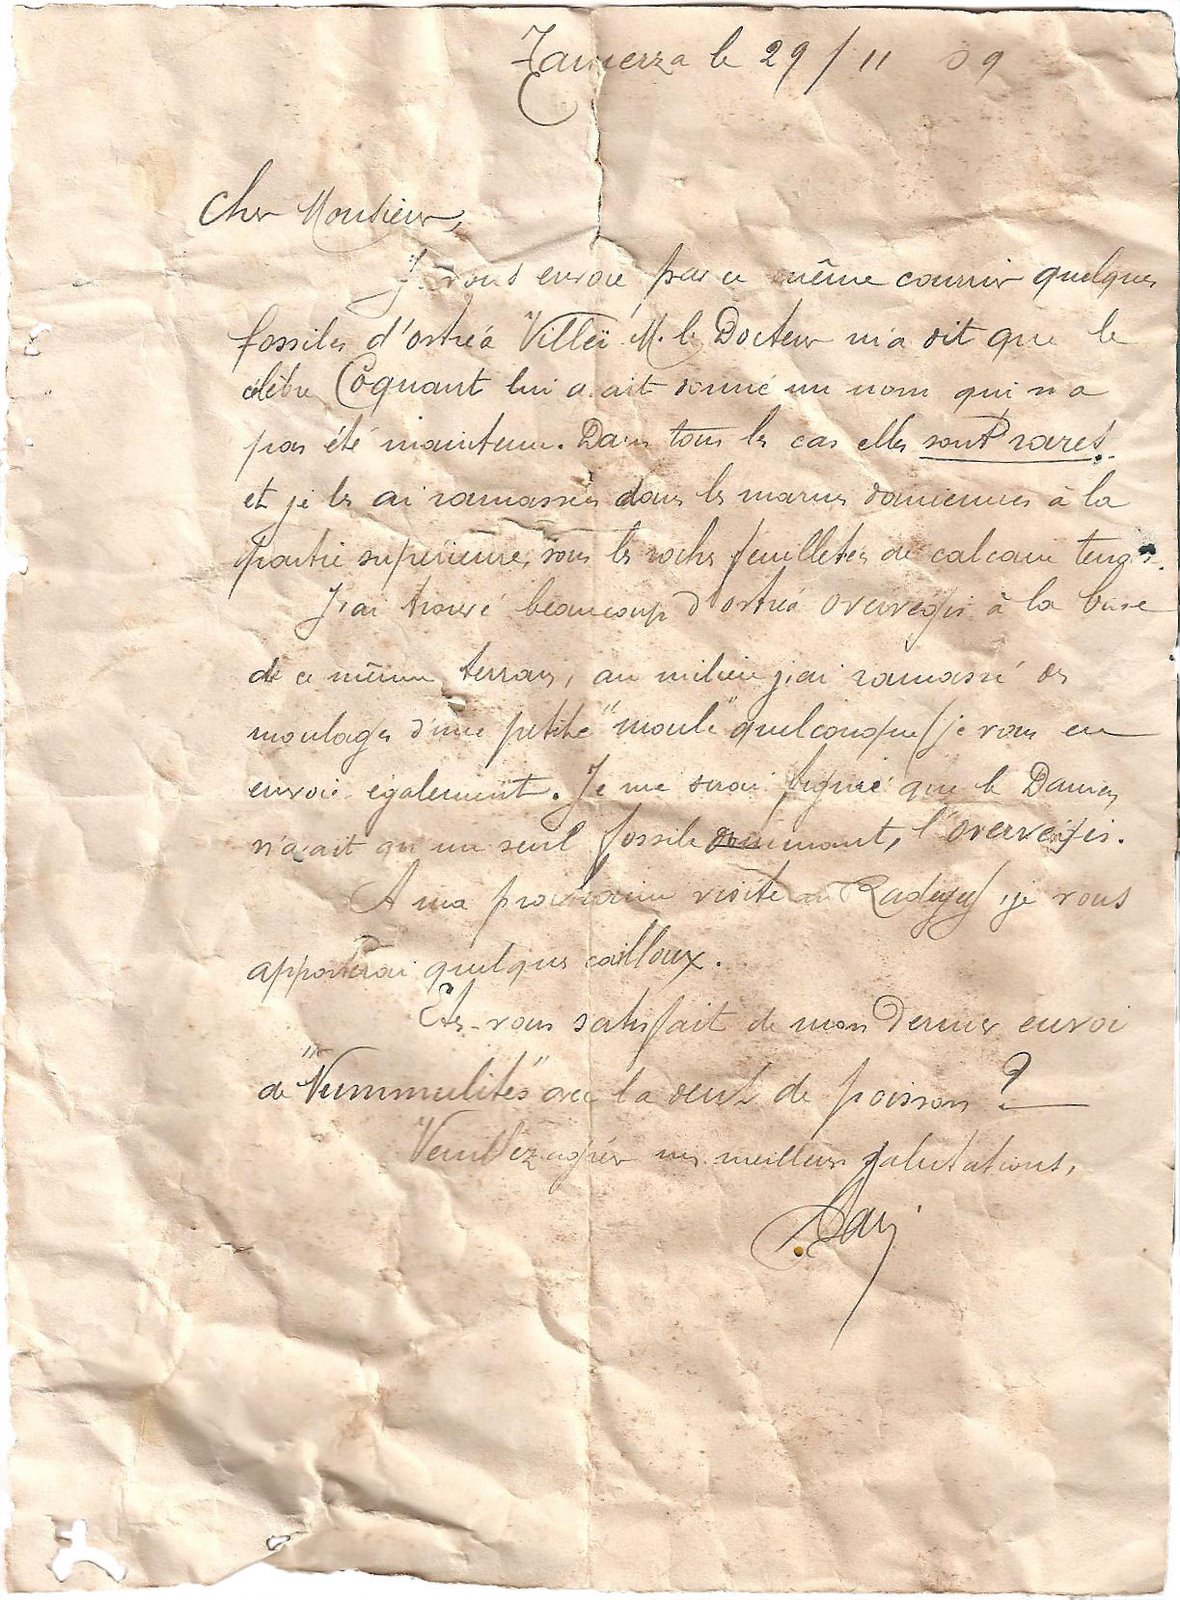 Tamerza le 29/11 39
Cher Monsieur,
Je vous envoie par ce même courrier quelques
fossiles d'ostréa Villeï. M. le Docteur m'a dit que le
célèbre Coquant lui avait donné un nom qui n'a
pas été maintenu. Dans tous les cas elles sont rares.
et je les ai ramassées dans les marnes daniennes à la
partie supérieure, sous les roches feuilletées de calcaire
J'ai trouvé beaucoup d'ostréa overwegis à la base
de ce même terrain, au milieu j'ai ramassé des
moulages d'une petite "moule" quelconque (je vous en
envoie également. Je me serai figuré que le Danien
n'avait qu'un seul fossile dominant, l'overwegis.
A ma prochaine visite au Redeyef, je vous
apporterai quelques cailloux.
Etes-vous satisfait de mon dernier envoi
de "Nummulites" avec la dent de poisson ?
Veuillez agréer mes meilleures salutations,